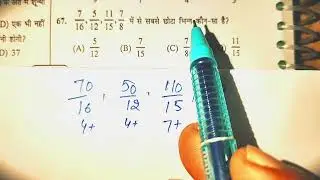 D) एक भी नहीं
67. 7/16, 5/12, 11/15, 7/8 में से सबसे छोटा भिन्न कौन-सा है?
होनी होगी?
D) 37
(A) 5/12 (B) 7/15 (C) 7/8 11/15
70/16, 50/12, 110/15,
4+ 4+ 7+